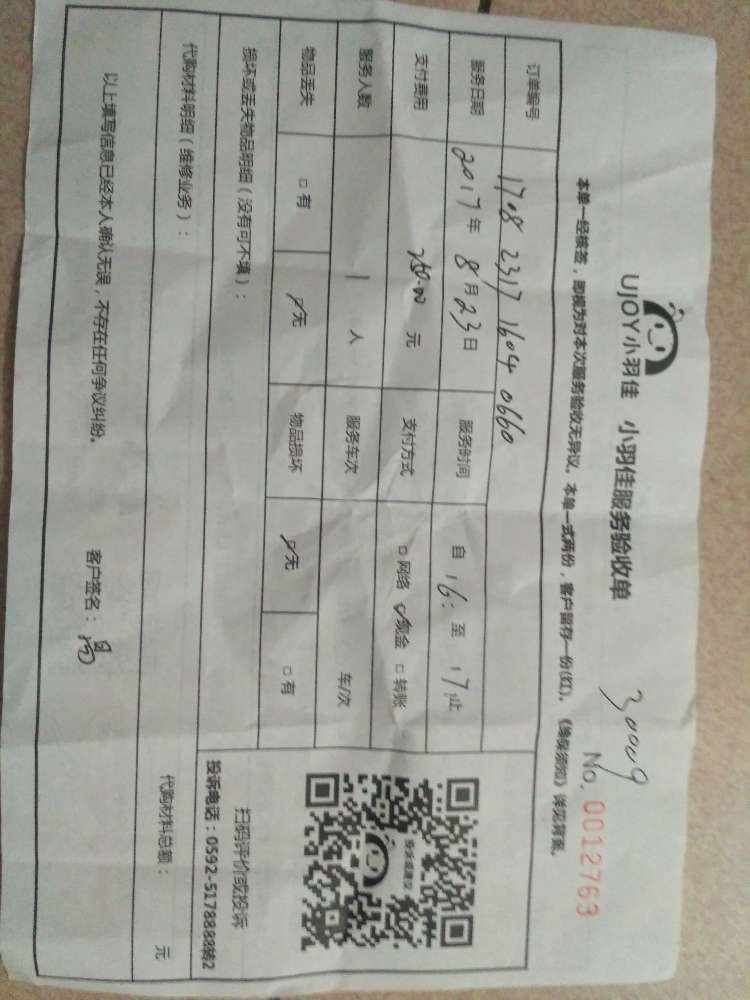 30009
UJOY小羽佳 小羽佳服务验收单
No. 0012763
本单一经核签，即视为对本次服务验收无异议。本单一式两份，客户留存一份(红)。《维保须知》详见背面。
订单编号 1708 2317 1604 0660
服务日期 2017年 8月23日 服务时间 自 16: 至 17止
支付费用 元 支付方式 □ 网络 ☑ 现金 □ 转账
服务人数 1 人 服务车次 车/次
物品丢失 □ 有 ☑ 无 物品损坏 ☑ 无 □ 有
损坏或丢失物品明细（没有可不填）：
投诉或建议
扫码评价或投诉
投诉电话：0592-5178888转2
代购材料明细（维修业务）：
代购材料总额： 元
以上填写信息已经本人确认无误，不存在任何争议纠纷。
客户签名：